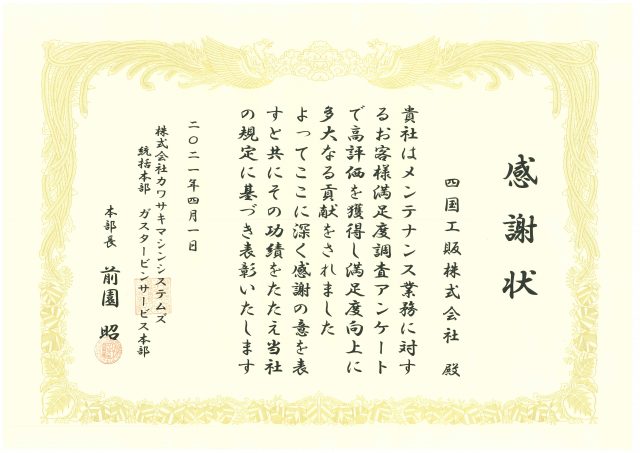 感謝状
四国工販株式会社 殿
貴社はメンテナンス業務に対す
るお客様満足度調査アンケート
で高評価を獲得し満足度向上に
多大なる貢献をされました
よってここに深く感謝の意を表
すと共にその功績をたたえ当社
の規定に基づき表彰いたします
二〇二一年四月一日
株式会社カワサキマシンシステムズ
統括本部 ガスタービンサービス本部
本部長 前園 昭